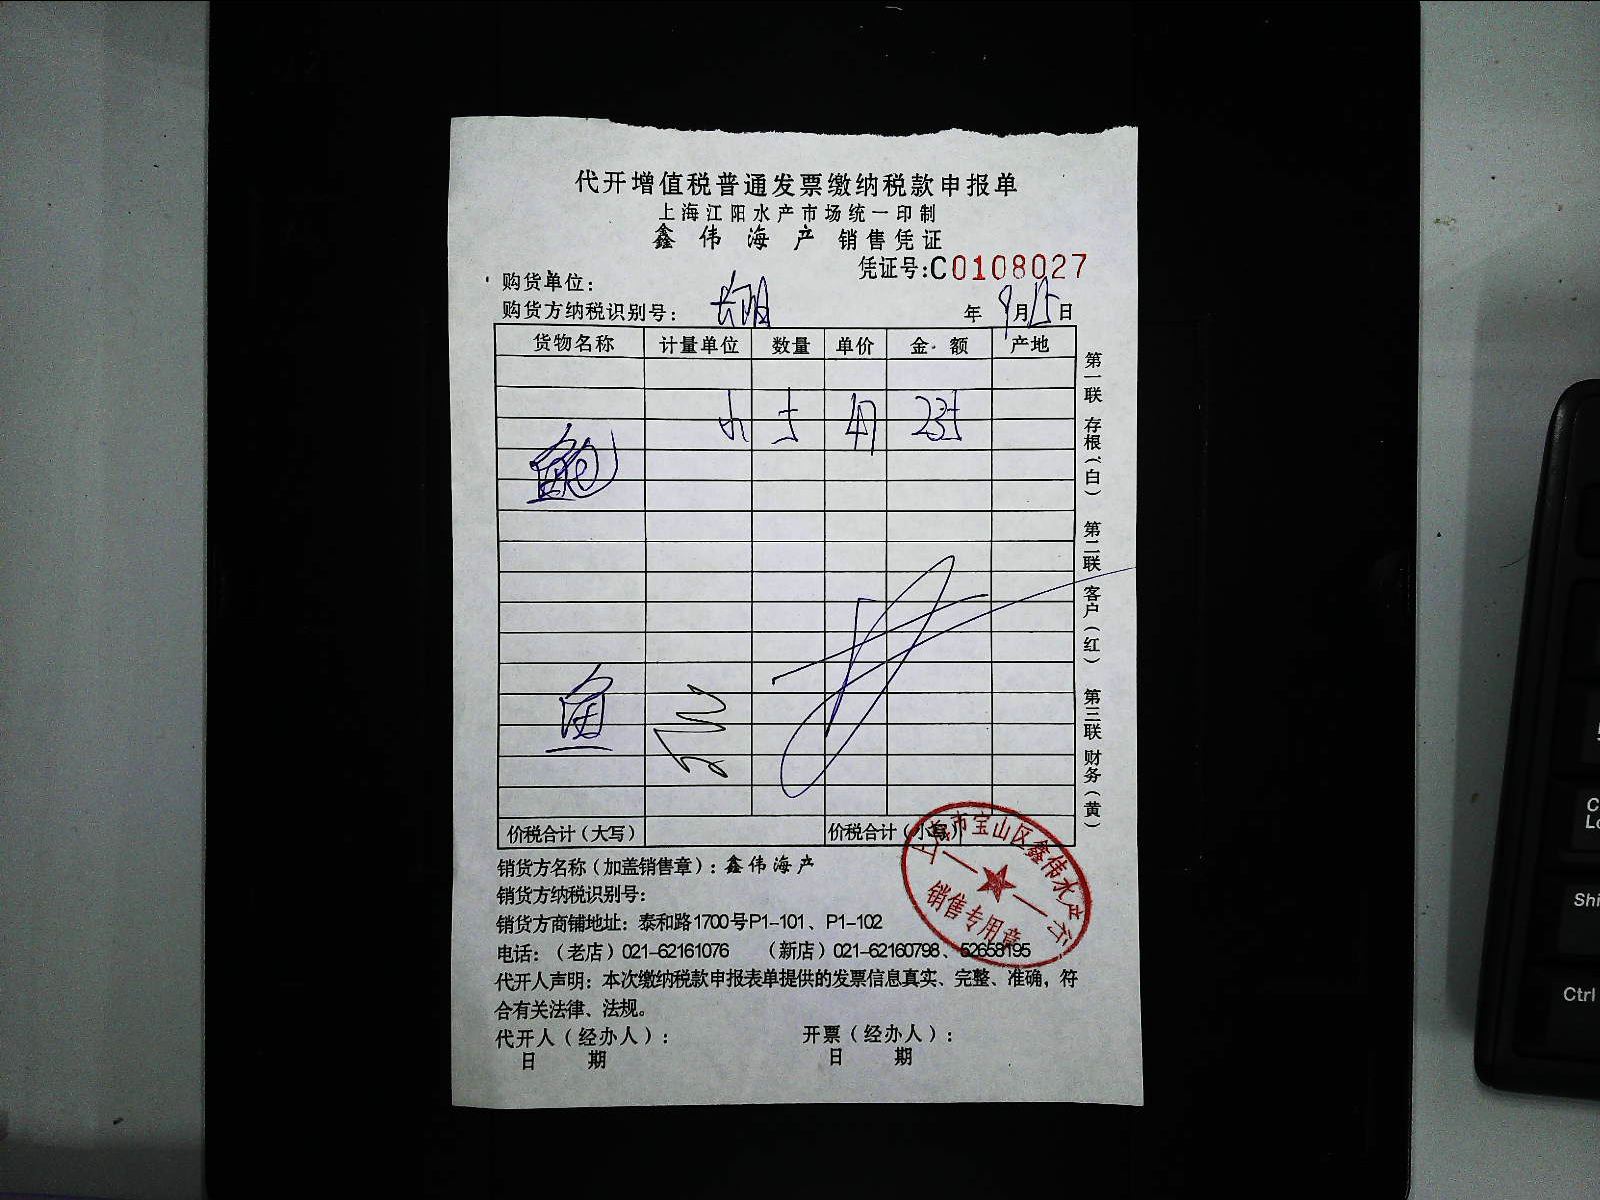 代开增值税普通发票缴纳税款申报单
上海江阳水产市场统一印制
鑫伟海产 销售凭证
凭证号:C0108027
购货单位:
购货方纳税识别号: 年 9月15日
货物名称 计量单位 数量 单价 金额 产地
价税合计(大写) 价税合计(小写)
销货方名称(加盖销售章):鑫伟海产
销货方纳税识别号:
销货方商铺地址:泰和路1700号P1-101、P1-102
电话:(老店)021-62161076 (新店)021-62160798、52658195
代开人声明:本次缴纳税款申报表单提供的发票信息真实、完整、准确,符
合有关法律、法规。
代开人(经办人): 开票(经办人):
日 期 日 期
第一联 存根(白) 第二联 客户(红) 第三联 财务(黄)
上海市宝山区鑫伟水产行
销售专用章
Shi
Ctrl